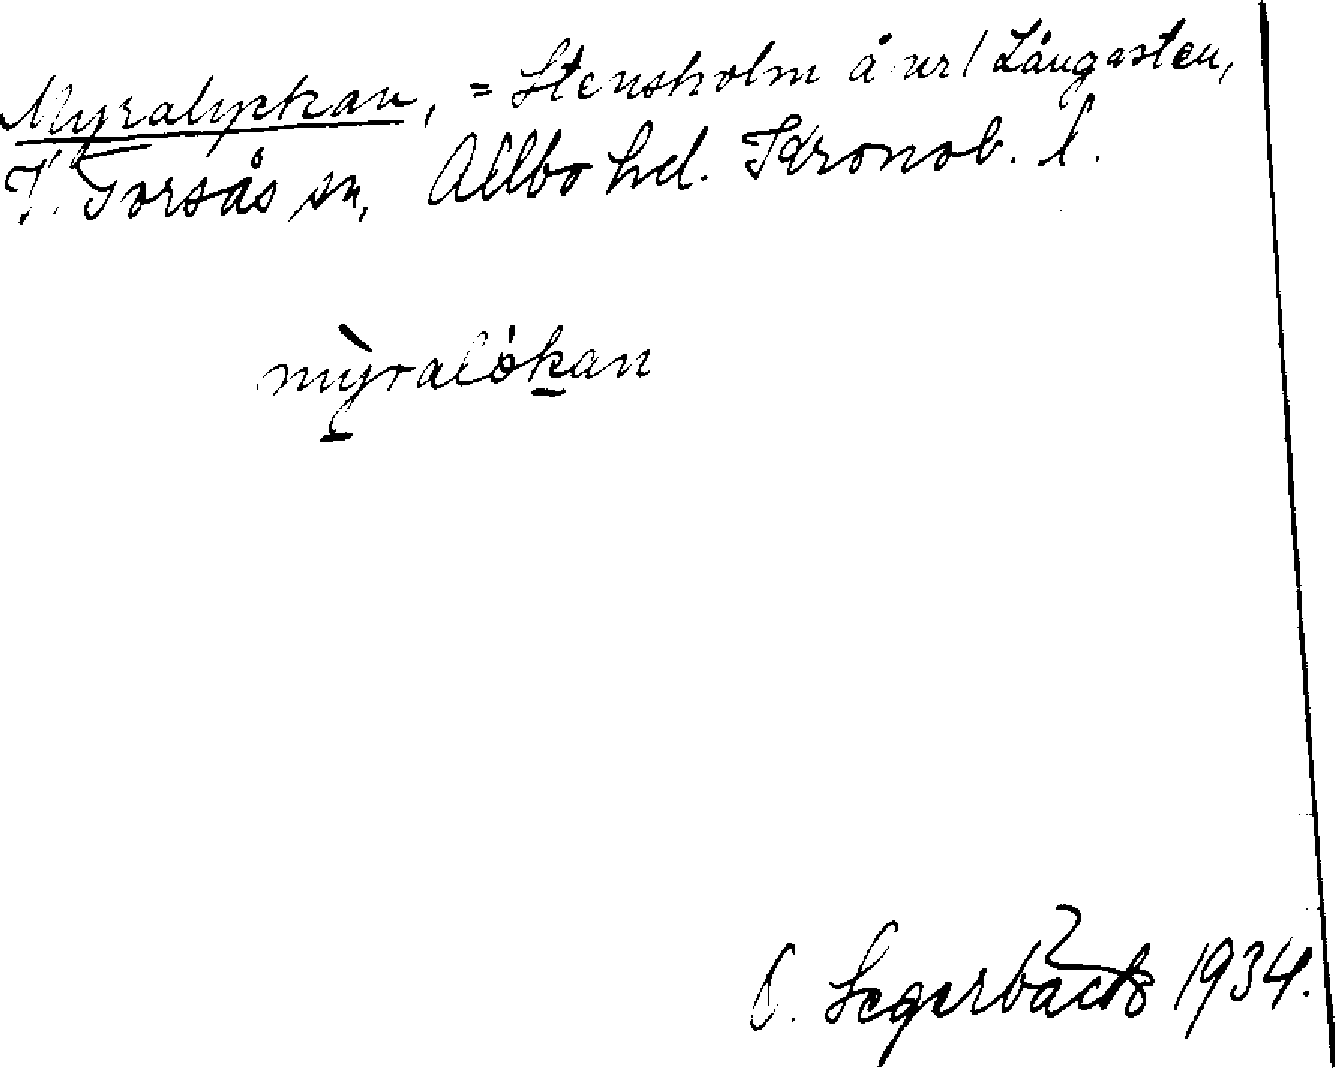 Myralyckan, = Stensholm å nr 1 Långasten,
V. Torsås sn, Allbo hd. Kronob. l.
mỳ̱ralóḵan
O. Segerbäck 1934.